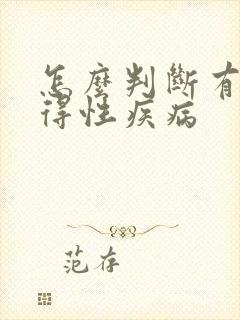 怎麼判斷有
得性疾病
范存